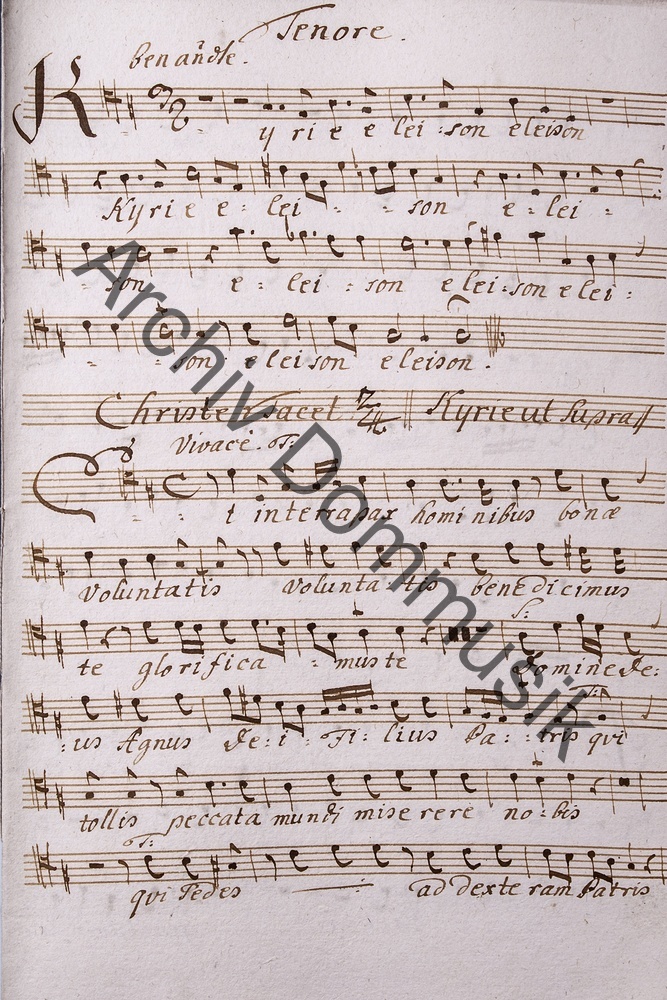 Tenore.
ben andte.
Kyrie elei:son eleison
Kyrie e: lei: - - son e:lei:
- son e:lei:son elei:son elei:
- - son eleison eleison.
Christe tacet 24 Kyrie ut Supra
Vivace. T:
Et in terra pax hominibus bonæ
voluntatis volunta:tis benedicimus
te glorifica - muste Domine De:
S:
:us Agnus De:i: Fi:lius Pa: :tris qui
T:
tollis peccata mundi miserere no:bis
T:
qui Sedes ad dexteram Patris
Archiv Dommusik